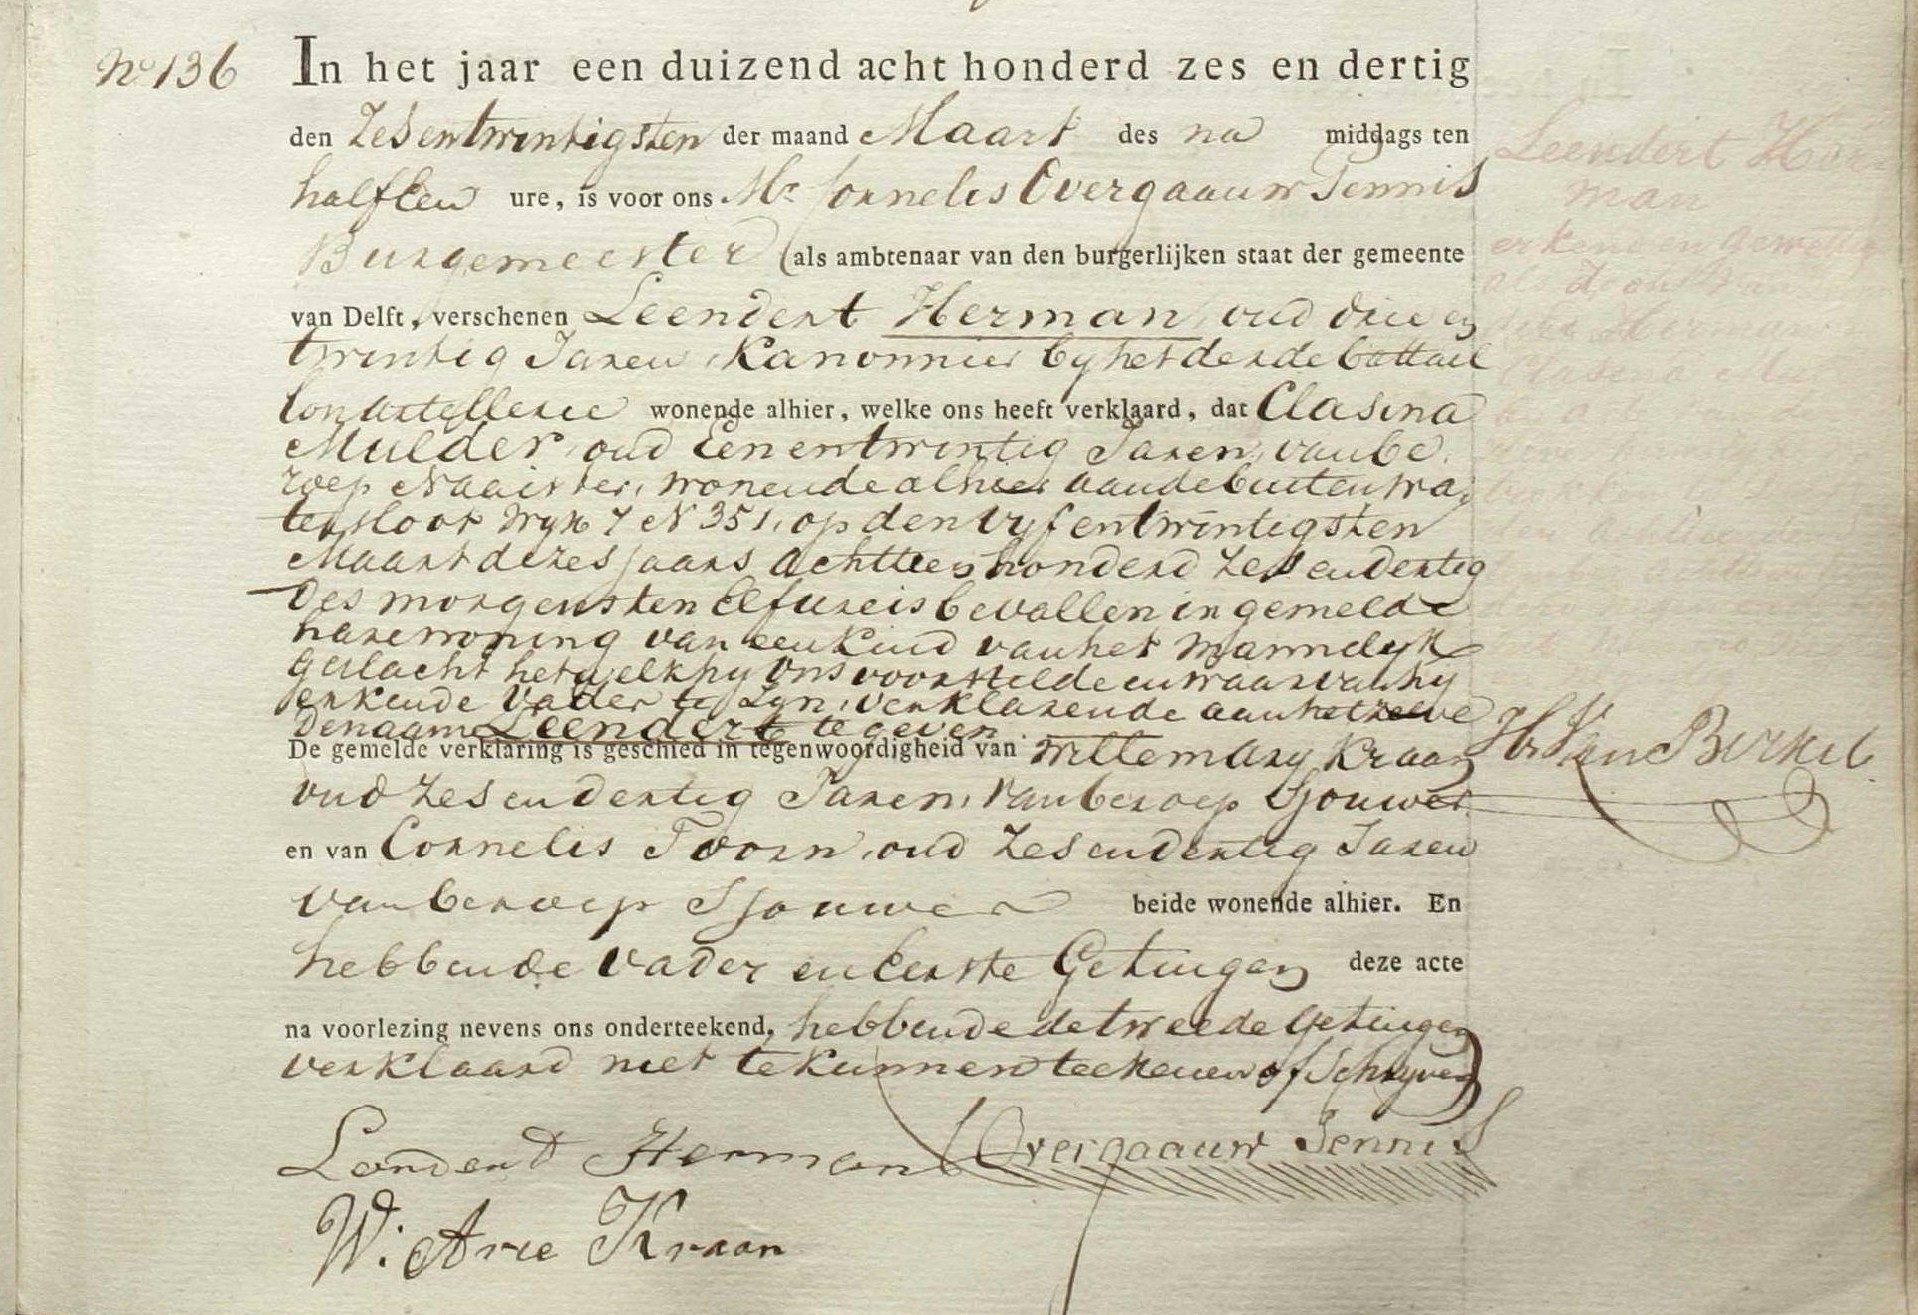 No 136
In het jaar een duizend acht honderd zes en dertig
den Zesentwintigsten der maand Maart des na middags ten
half een ure, is voor ons Mr Cornelis Overgaauw Pennis
Burgemeester (als ambtenaar van den burgerlijken staat der gemeente
van Delft, verschenen Leendert Herman, oud drie en
twintig Jaren, Kanonnier by het derde battail
lon Artellerie wonende alhier, welke ons heeft verklaard, dat Clasina
Mulder, oud Een entwintig Jaren, van be
roep Naaister, wonende alhier aan de buitenwa
tersloot Wyk 7 N 351, op den Vyfentwintigsten
Maart dezes jaars achttien honderd Zes en dertig
des morgens ten Elf ure is bevallen in gemelde
hare woning van een Kind van het mannelyk
geslacht hetwelk hy ons voorstelde en waarvan hy
erkende Vader te Zyn, verklarende aan hetzelve
den naam Leendert te geven
De gemelde verklaring is geschied in tegenwoordigheid van Willem Ary Kraan
oud Zes en dertig Jaren, van beroep Sjouwer
en van Cornelis Toorn, oud Zes en dertig Jaren
van beroep Sjouwer beide wonende alhier. En
hebbende Vader en Eerste Getuigen deze acte
na voorlezing nevens ons onderteekend, hebbende de tweede getuigen
verklaard niet te kunnen teekenen of Schryven
Lendert Herman
C Overgaauw Pennis
W: Arie Kraan
Leendert Her
man
erkend en gewettigd
als
Herman
Clasina
H. Van Berkel